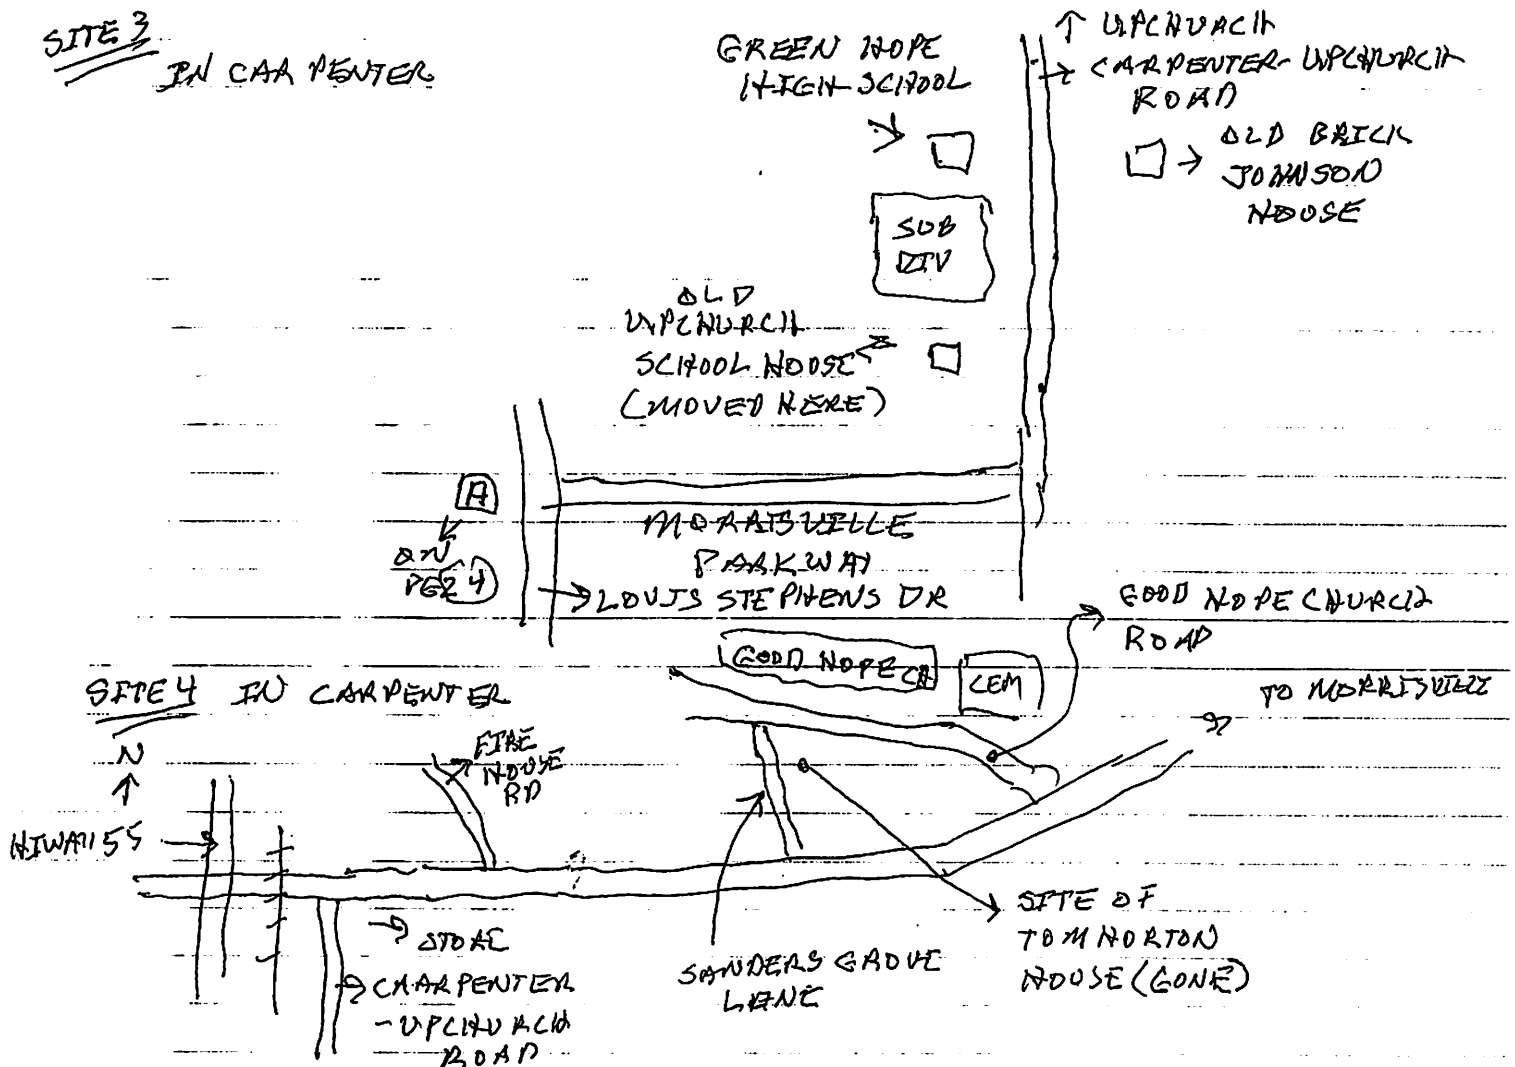 SITE 3
IN CARPENTER
GREEN HOPE
HIGH SCHOOL
↑ UPCHURCH
→ CARPENTER-UPCHURCH
ROAD
→ OLD BRICK
JOHNSON
HOUSE
SUB
DIV
OLD
UPCHURCH
SCHOOL HOUSE
(MOVED HERE)
A
ON
MORRISVILLE
PARKWAY
LOUIS STEPHENS DR
GOOD HOPE CHURCH
ROAD
GOOD HOPE CH
CEM
SITE 4 IN CARPENTER
TO MORRISVILLE
N
FIRE
HOUSE
RD
HIWAY 55
STORE
CARPENTER
-UPCHURCH
ROAD
SANDERS GROVE
LANE
SITE OF
TOM HORTON
HOUSE (GONE)